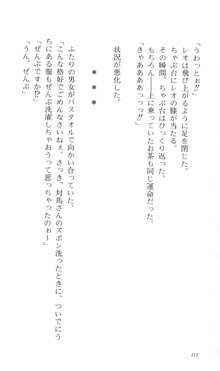 「うわっとぉ!!」
レオは飛び上がるように足を閉じた。
ちゃぶ台にレオの膝が当たる。
その瞬間、ちゃぶ台はひっくり返った。
もちろん――上に乗っていたお茶も同じ運命だった。
「きゃああああっっっ!!」
状況が悪化した。
＊　＊　＊
ふたりの男女がバスタオルで向かい合っていた。
「こんな格好でごめんなさいねぇ。さっき、対馬さんのズボン洗ったときに、ついでにう
ちにある服もぜんぶ洗濯しちゃおうって思っちゃったのぉー」
「ぜんぶですか!?」
「うん、ぜんぶ」